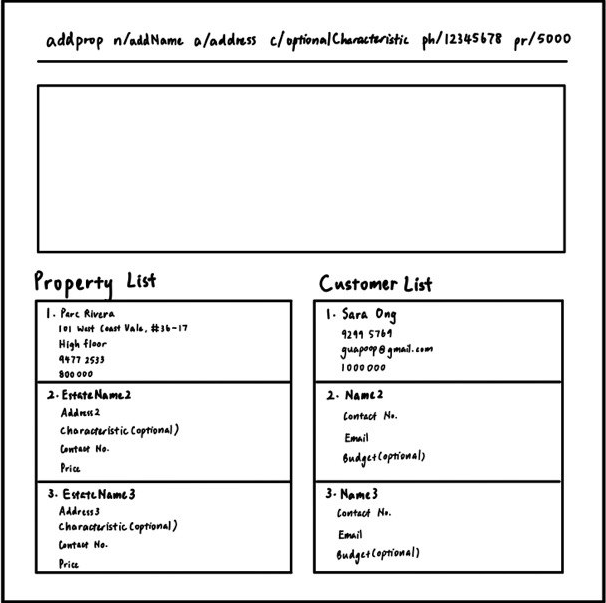 addprop n/addName a/address c/optionalCharacteristic ph/12345678 pr/5000
Property List
1. Parc Rivera
101 West Coast Vale, #36-17
High floor
9477 2533
800 000
2. EstateName2
Address2
Characteristic (optional)
Contact No.
Price
3. EstateName3
Address3
Characteristic (optional)
Contact No.
Price
Customer List
1. Sara Ong
9299 5769
guapoop@gmail.com
1000 000
2. Name2
Contact No.
Email
Budget (optional)
3. Name3
Contact No.
Email
Budget (optional)